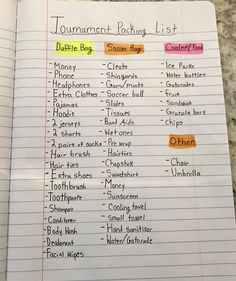 Tournament Packing List
Duffle Bag
- Money
- Phone
- Headphones
- Extra Clothes
- Pajamas
- Hoodie
- 2 jerseys
- 2 shorts
- 2 pairs of socks
- Hair brush
- Hair ties
- Extra shoes
- Toothbrush
- Toothpaste
- Shampoo
- Conditioner
- Body Wash
- Deodorant
- Facial Wipes
Soccer Bag
- Cleats
- Shinguards
- Gum/mints
- Soccer ball
- Slides
- Tissues
- Band Aids
- Wet ones
- Pre wrap
- Hairties
- Chapstick
- Sweatshirt
- Money
- Sunscreen
- Cooling towel
- Small towel
- Hand sanitizer
- Water/Gatorade
Cooler/Food
- Ice Packs
- Water bottles
- Gatorades
- Fruit
- Sandwich
- Granola bars
- Chips
Other
- Chair
- Umbrella